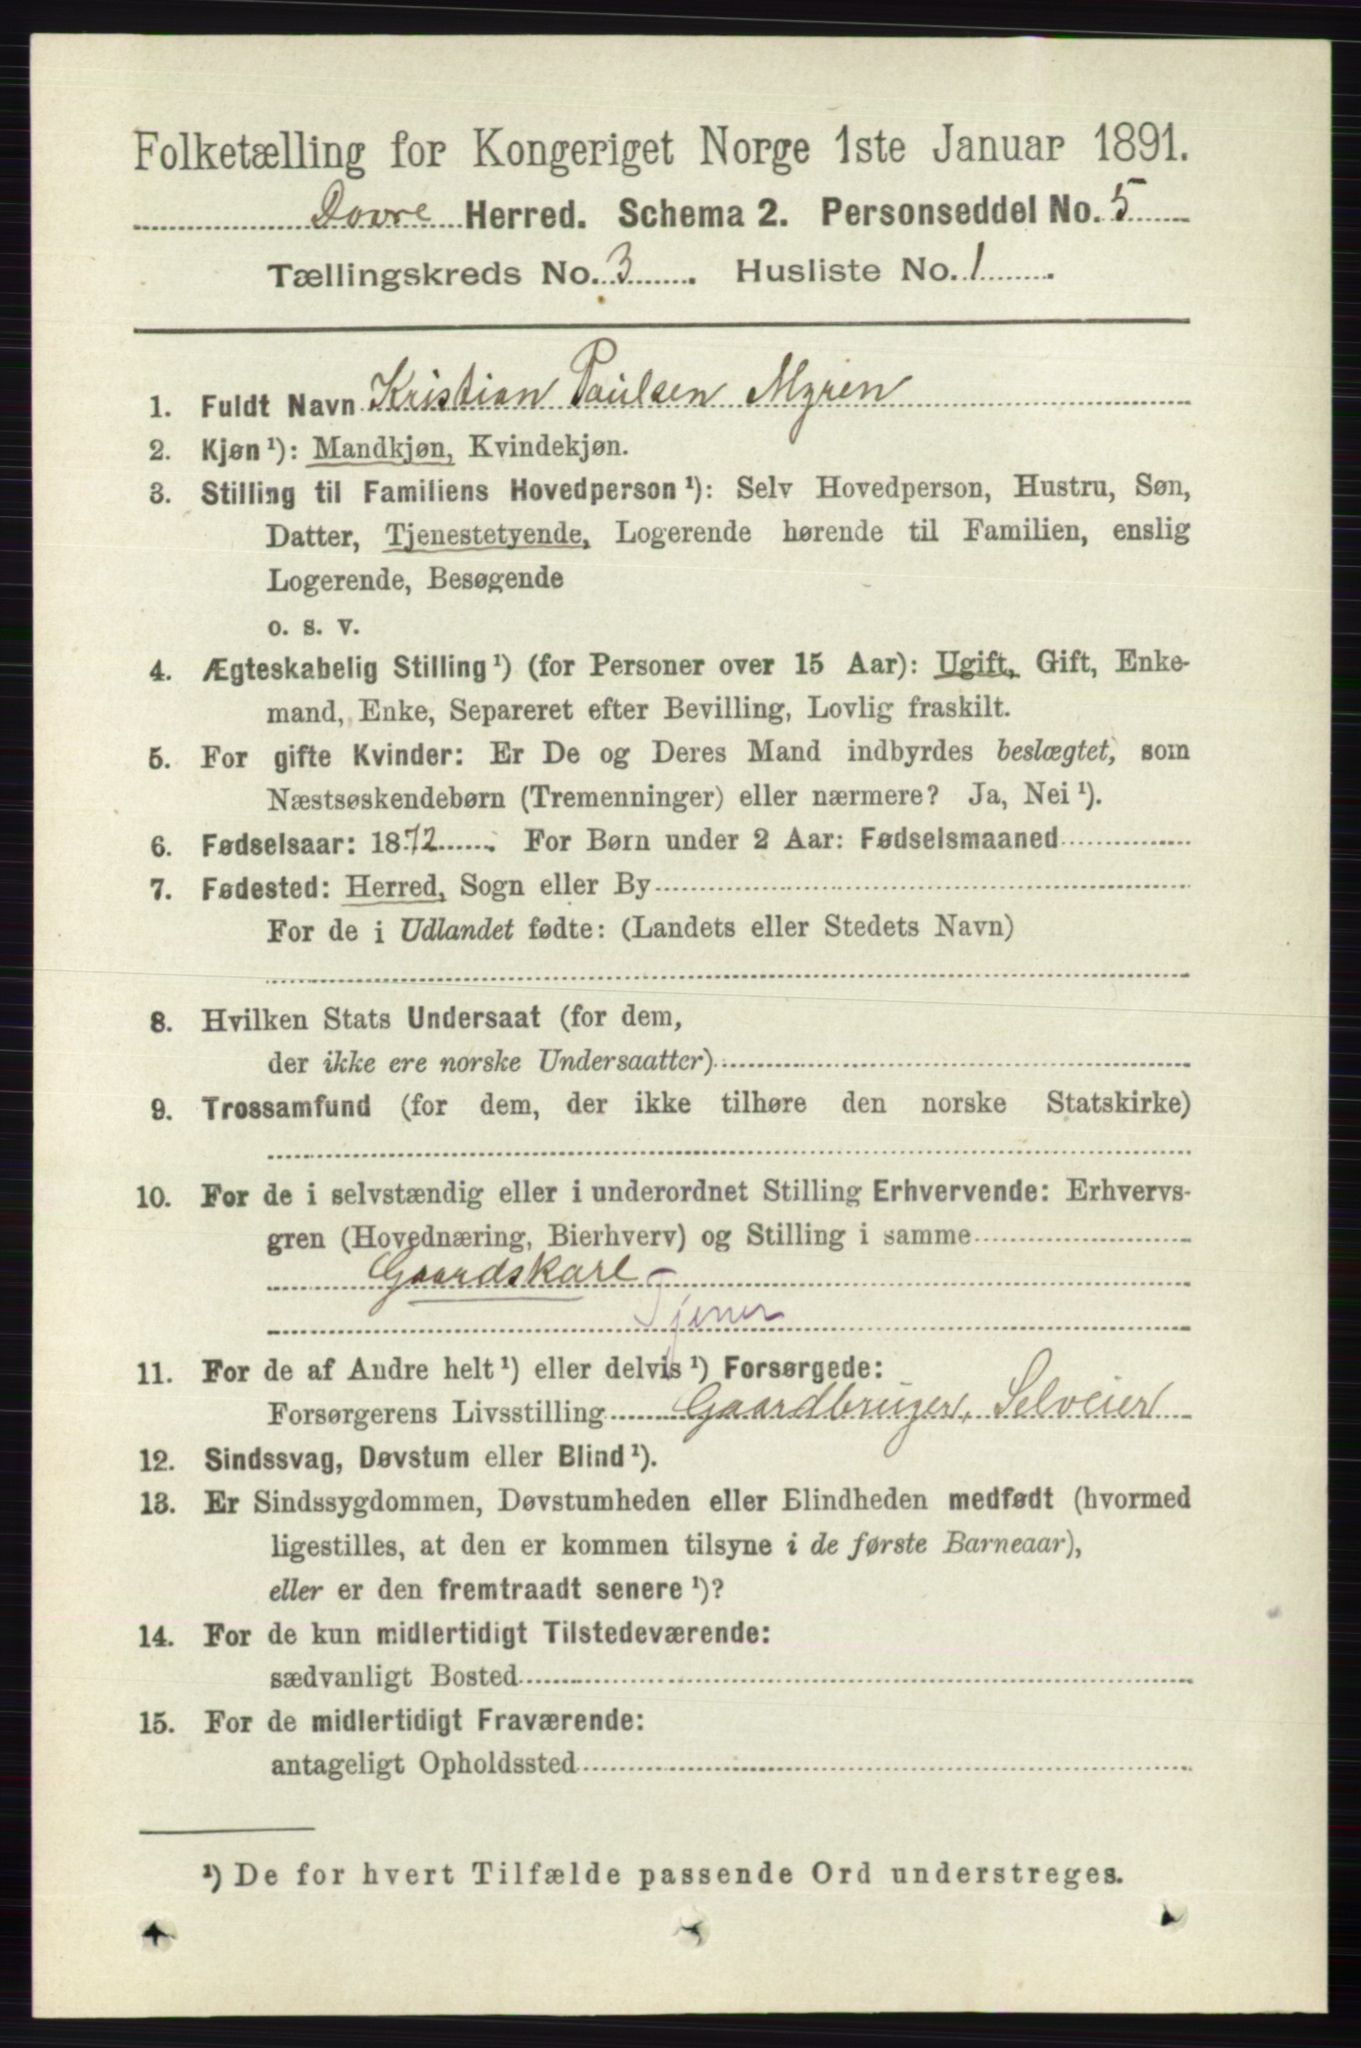 Folketælling for Kongeriget Norge 1ste Januar 1891.
Dovre Herred. Schema 2. Personseddel No. 5
Tællingskreds No. 3. Husliste No. 1.
1. Fuldt Navn Kristian Paulsen Myren
2. Kjøn¹): Mandkjøn, Kvindekjøn.
3. Stilling til Familiens Hovedperson¹): Selv Hovedperson, Hustru, Søn,
Datter, Tjenestetyende, Logerende hørende til Familien, enslig
Logerende, Besøgende
o. s. v.
4. Ægteskabelig Stilling¹) (for Personer over 15 Aar): Ugift, Gift, Enke-
mand, Enke, Separeret efter Bevilling, Lovlig fraskilt.
5. For gifte Kvinder: Er De og Deres Mand indbyrdes beslægtet, som
Næstsøskendebørn (Tremenninger) eller nærmere? Ja, Nei¹).
6. Fødselsaar: 1872. For Børn under 2 Aar: Fødselsmaaned
7. Fødested: Herred, Sogn eller By
For de i Udlandet fødte: (Landets eller Stedets Navn)
8. Hvilken Stats Undersaat (for dem,
der ikke ere norske Undersaatter)
9. Trossamfund (for dem, der ikke tilhøre den norske Statskirke)
10. For de i selvstændig eller i underordnet Stilling Erhvervende: Erhvervs-
gren (Hovednæring, Bierhverv) og Stilling i samme
Gaardskarl
Tjener
11. For de af Andre helt¹) eller delvis¹) Forsørgede:
Forsørgerens Livsstilling Gaardbruger, Selveier
12. Sindssvag, Døvstum eller Blind¹).
13. Er Sindssygdommen, Døvstumheden eller Blindheden medfødt (hvormed
ligestilles, at den er kommen tilsyne i de første Barneaar),
eller er den fremtraadt senere¹)?
14. For de kun midlertidigt Tilstedeværende:
sædvanligt Bosted
15. For de midlertidigt Fraværende:
antageligt Opholdssted
¹) De for hvert Tilfælde passende Ord understreges.